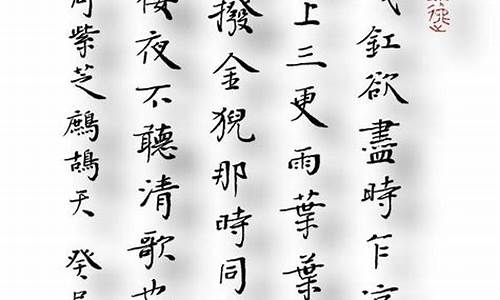 釭欲盡時乍凉
上三更雨葉葉
撥金猊那時同
楼夜不聽清歌也
周紫芝鷓鴣天 癸